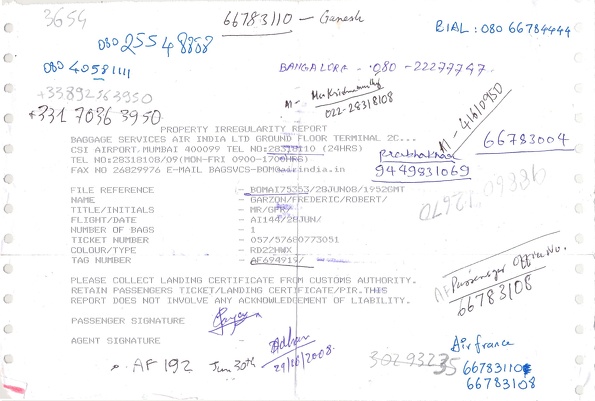 3654
66783110 - Ganesh
BIAL: 080 66784444
080 25548888
080 40581111
BANGALORE - 080 - 22277747.
+33892563950
+331 7036 3950
AI - Mr Krishnamurthy
022-28318108
AI - 41610950
66783004
Prabhakhar
9449831069
PROPERTY IRREGULARITY REPORT
BAGGAGE SERVICES AIR INDIA LTD GROUND FLOOR TERMINAL 2C...
CSI AIRPORT.MUMBAI 400099 TEL NO:28318110 (24HRS)
TEL NO:28318108/09(MON-FRI 0900-1700HRS)
FAX NO 26829976 E-MAIL BAGSVCS-BOM@airindia.in
FILE REFERENCE - BOMAI75353/28JUN08/1952GMT
NAME - GARZON/FREDERIC/ROBERT/
TITLE/INITIALS - MR/GFR/
FLIGHT/DATE - AI144/28JUN/
NUMBER OF BAGS - 1
TICKET NUMBER - 057/57680773051
COLOUR/TYPE - RD22HWX
TAG NUMBER - AF694919/
PLEASE COLLECT LANDING CERTIFICATE FROM CUSTOMS AUTHORITY.
RETAIN PASSENGERS TICKET/LANDING CERTIFICATE/PIR.THIS
REPORT DOES NOT INVOLVE ANY ACKNOWLEDCEMENT OF LIABILITY.
PASSENGER SIGNATURE
AGENT SIGNATURE -
AF Passenger Office No.
66783108
AF 192 Jun 30th
29/06/2008.
302 93235
Air france
66783110
66783108